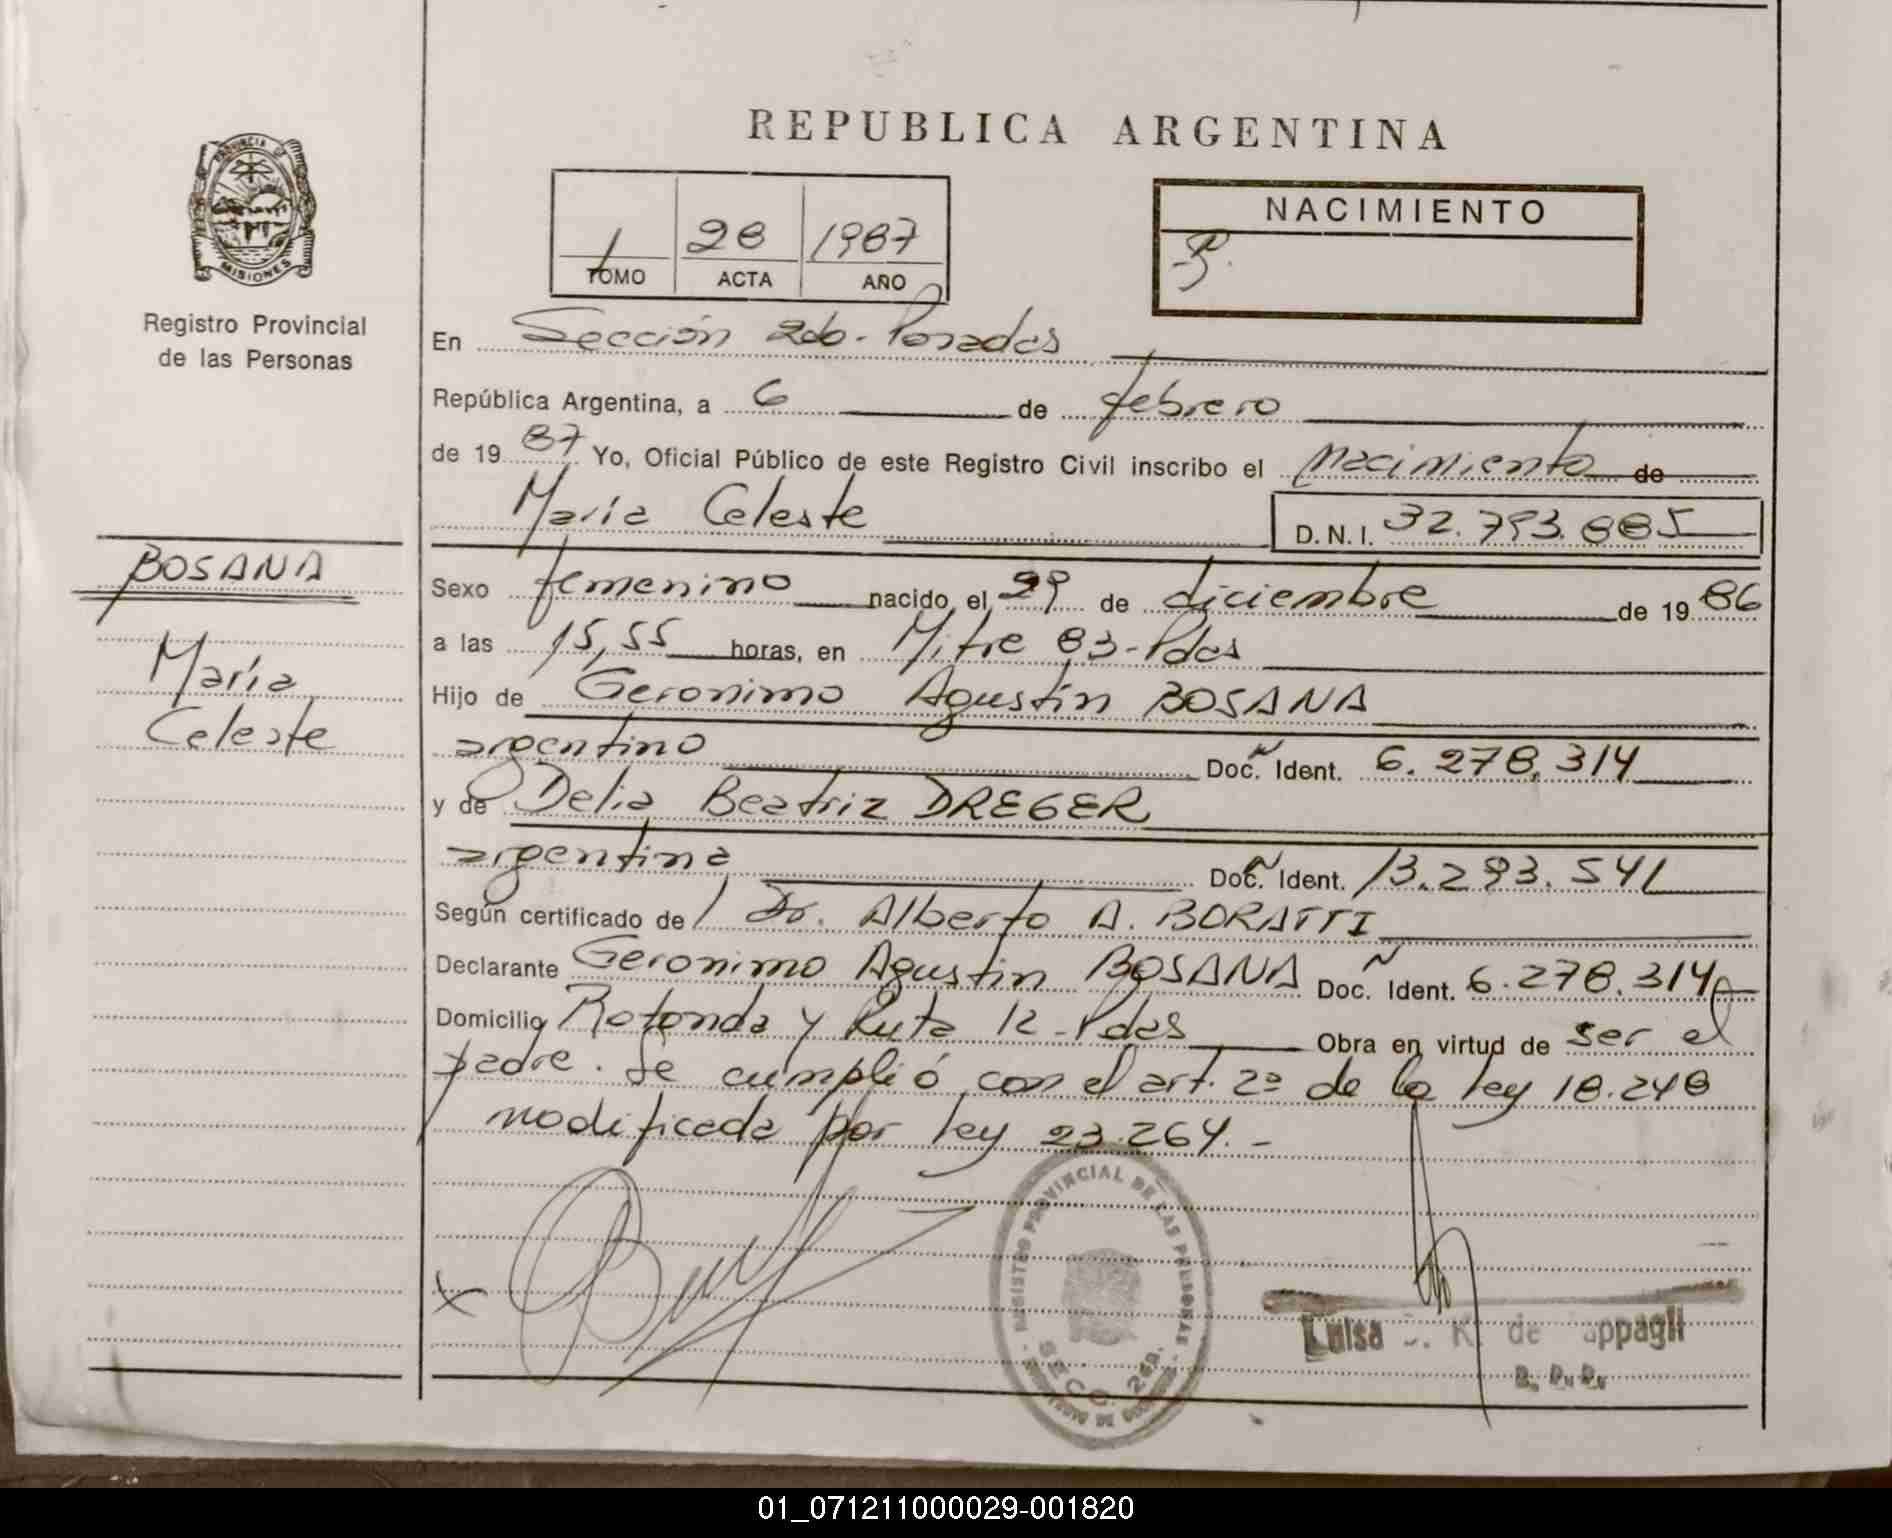 REPUBLICA ARGENTINA
PROVINCIA DE
MISIONES
Registro Provincial
de las Personas
1 28 1987
TOMO ACTA AÑO
NACIMIENTO
En Sección 2da. Posadas
República Argentina, a 6 de febrero
de 1987 Yo, Oficial Público de este Registro Civil inscribo el Nacimiento de
María Celeste D.N.I. 32.793.885
BOSANA
María
Celeste
Sexo femenino nacido el 29 de diciembre de 1986
a las 15,55 horas, en Mitre 83-Pdas
Hijo de Geronimo Agustín BOSANA
argentino Doc. Ident. 6.278.314
y de Delia Beatriz DREGER
argentina Doc. Ident. 13.293.541
Según certificado de Dr. Alberto A. BORATTI
Declarante Geronimo Agustin BOSANA Doc. Ident. 6.278.314
Domicilio Rotonda y Ruta 12-Pdas Obra en virtud de ser el
padre. Se cumplió con el art. 2º de la ley 18.248
modificada por ley 23.264.-
REGISTRO PROVINCIAL DE LAS PERSONAS
SECC. 2da.
Luisa K. de
01_071211000029-001820